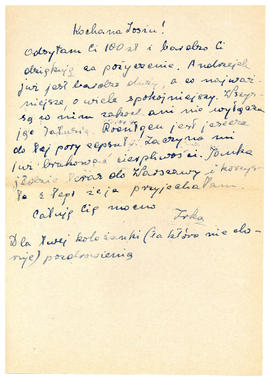 Kochana Zosiu!
Odsyłam Ci 100 zł i bardzo Ci
dziękuję za pożyczenie. Andrzejek
już jest bardzo duży, a co najważ-
niejsze, o wiele spokojniejszy. Wszys-
cy w nim zakoch. ani nie wyłącza
jąc Tatusia. Roentgen jest jeszcze
do tej pory zepsuty. Zaczyna mi
już brakować cierpliwości. Tomka
jedzie teraz do Warszawy i korzys-
ta z tego że ja przyjechałam.
Całuję Cię mocno
Irka
Dla twej koleżanki (ta która nie cho-
ruje) pozdrowienia